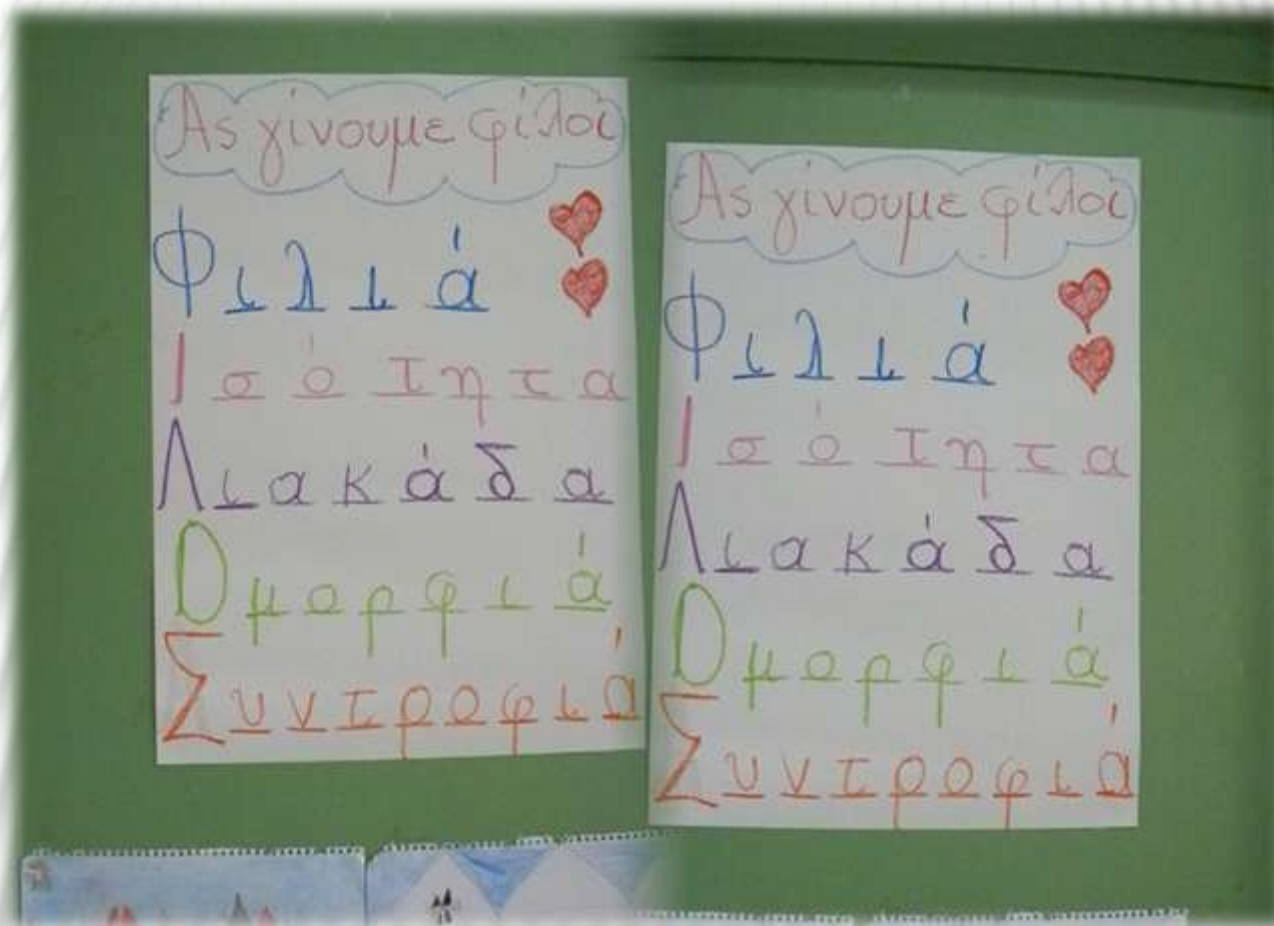 Ας γίνουμε φίλοι
Φιλιά
Ισότητα
Λιακάδα
Ομορφιά
Συντροφιά
Ας γίνουμε φίλοι
Φιλιά
Ισότητα
Λιακάδα
Ομορφιά
Συντροφιά